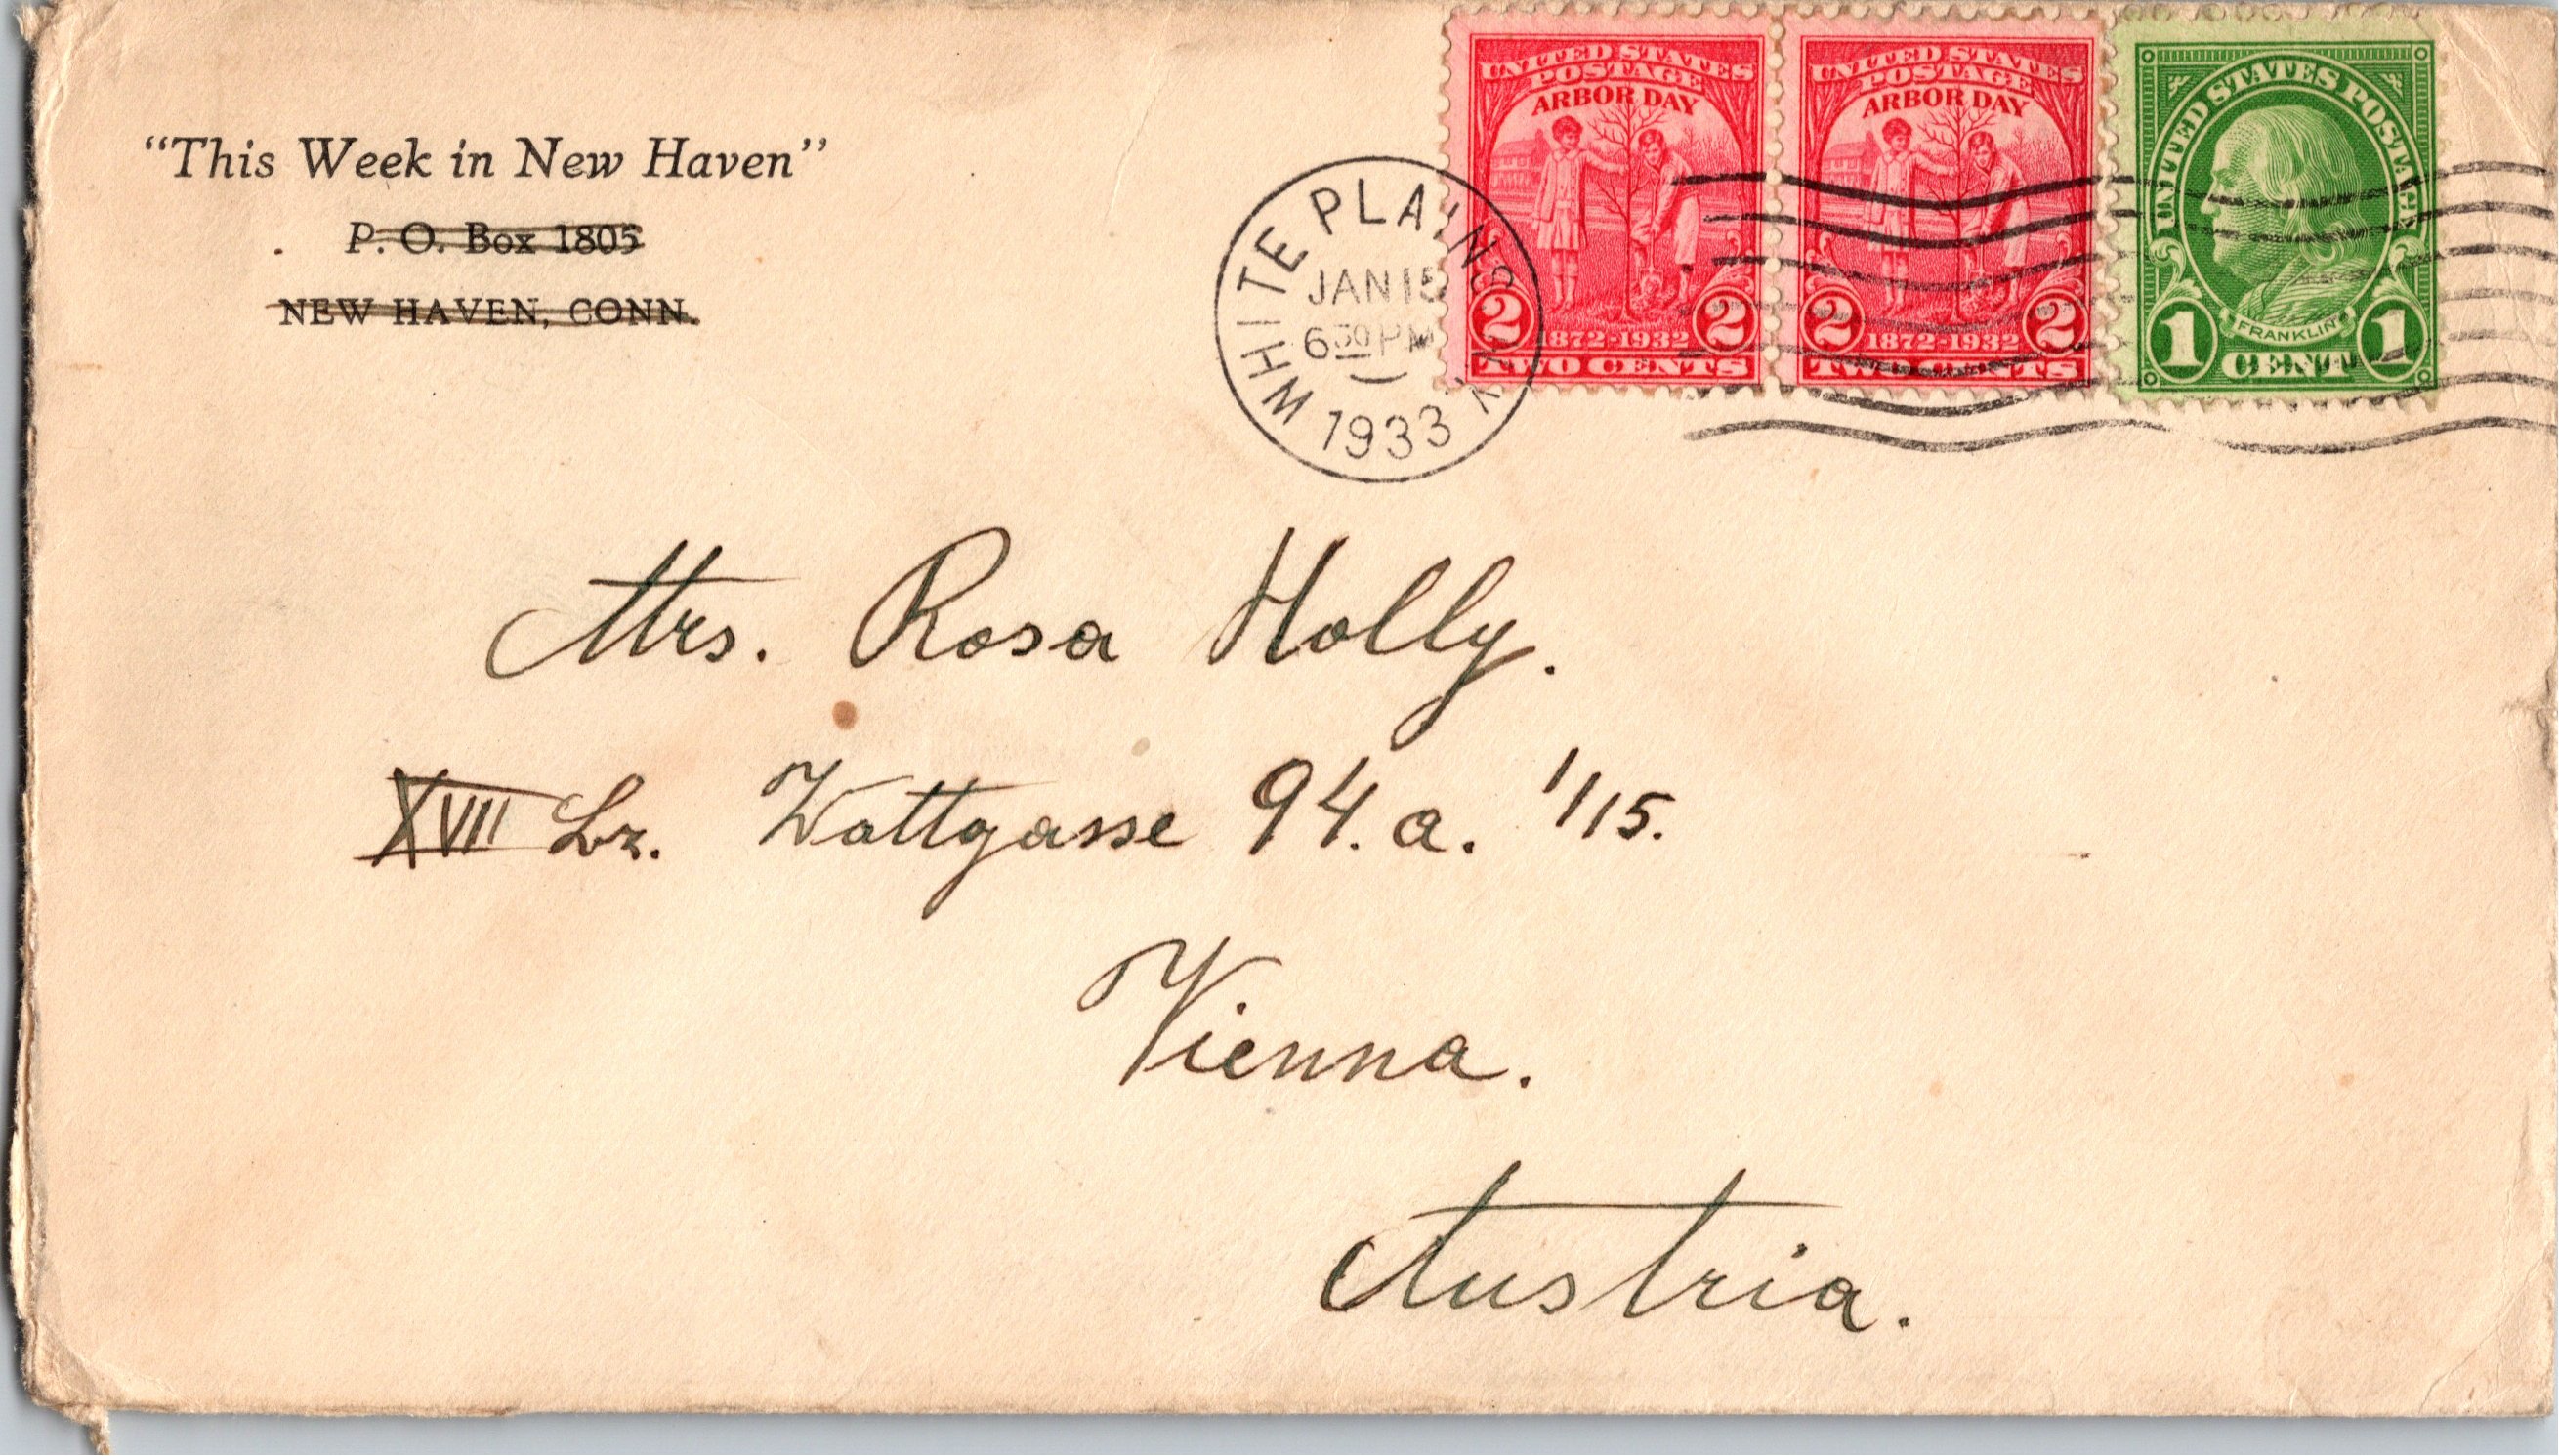 “This Week in New Haven”
P. O. Box 1805
NEW HAVEN, CONN.
WHITE PLAINS N.Y.
JAN 15
6 30 PM
1933
UNITED STATES
POSTAGE
ARBOR DAY
2 1872-1932 2
TWO CENTS
UNITED STATES
POSTAGE
ARBOR DAY
2 1872-1932 2
TWO CENTS
UNITED STATES POSTAGE
FRANKLIN
1 CENT 1
Mrs. Rosa Holly.
XVII Wattgasse 94. a. 1/15.
Vienna.
Austria.